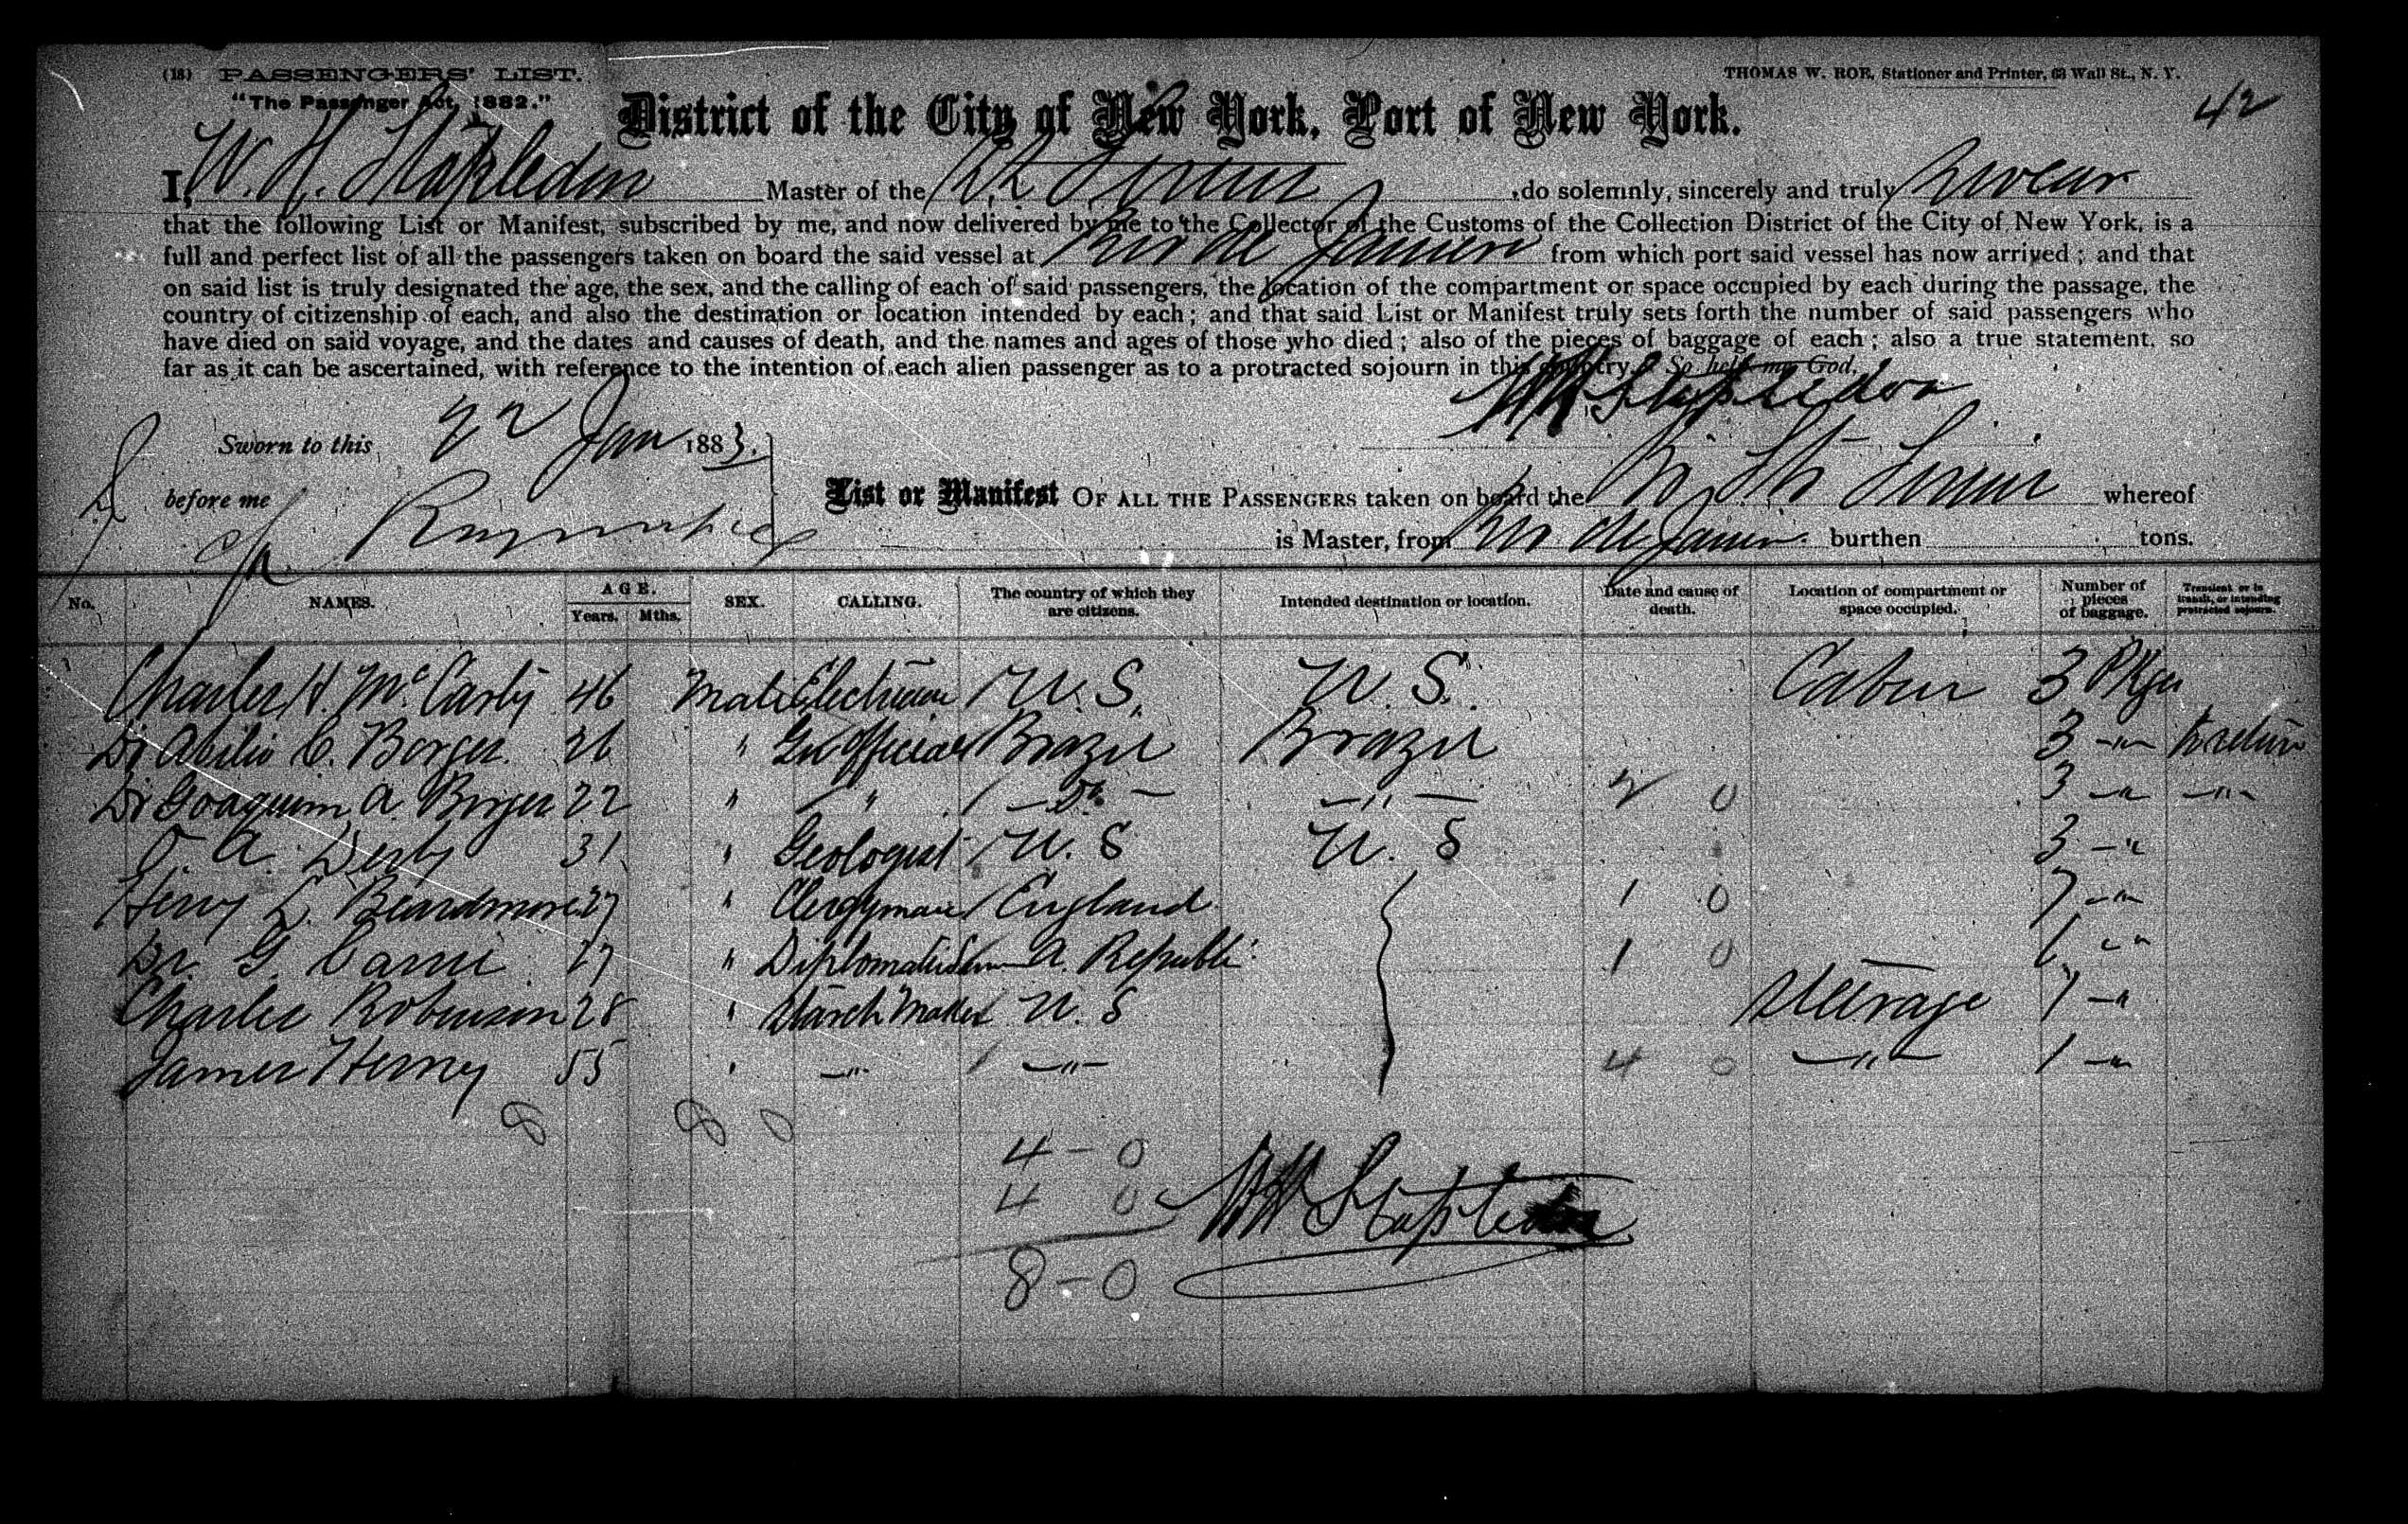 (18) PASSENGERS' LIST.
"The Passenger Act, 1882."
THOMAS W. ROE, Stationer and Printer, 63 Wall St., N. Y.
42
District of the City of New York, Port of New York.
I, W. H. Stapledon Master of the do solemnly, sincerely and truly swear
that the following List or Manifest, subscribed by me, and now delivered by me to the Collector of the Customs of the Collection District of the City of New York, is a
full and perfect list of all the passengers taken on board the said vessel at Rio de Janeiro from which port said vessel has now arrived; and that
on said list is truly designated the age, the sex, and the calling of each of said passengers, the location of the compartment or space occupied by each during the passage, the
country of citizenship of each, and also the destination or location intended by each; and that said List or Manifest truly sets forth the number of said passengers who
have died on said voyage, and the dates and causes of death, and the names and ages of those who died; also of the pieces of baggage of each; also a true statement, so
far as it can be ascertained, with reference to the intention of each alien passenger as to a protracted sojourn in this country. So help me God.
WH Stapledon
Sworn to this 22 Jan 1883.
before me
List or Manifest OF ALL THE PASSENGERS taken on board the whereof
is Master, from Rio de Janeiro burthen tons.
No. NAMES. AGE. Years. Mths. SEX. CALLING. The country of which they are citizens. Intended destination or location. Date and cause of death. Location of compartment or space occupied. Number of pieces of baggage. Transient or in transit, or intending protracted sojourn.
Charles H. McCarty 46 Male Electrician U. S. U. S. Cabin 3 Pkgs
Dr Abilio C. Borges 26 " Gov Official Brazil Brazil 3 -"- to return
Dr Joaquim A. Borges 22 " " - Do. - -"- 2 0 3 -"- -"-
O. A. Derby 31 " Geologist U. S U. S 3 -"-
Henry L. Beardmore 27 " Clergyman England 1 0 7 -"-
Dr. G. 27 " A. Republic 1 0 1 -"-
Charles Robinson 28 " Starch Maker U. S Steerage 7 -"-
James Henry 55 " -"- -"- 4 0 -"- 1 -"-
8 8 0
4 - 0
4 0
WH Stapledon
8 - 0